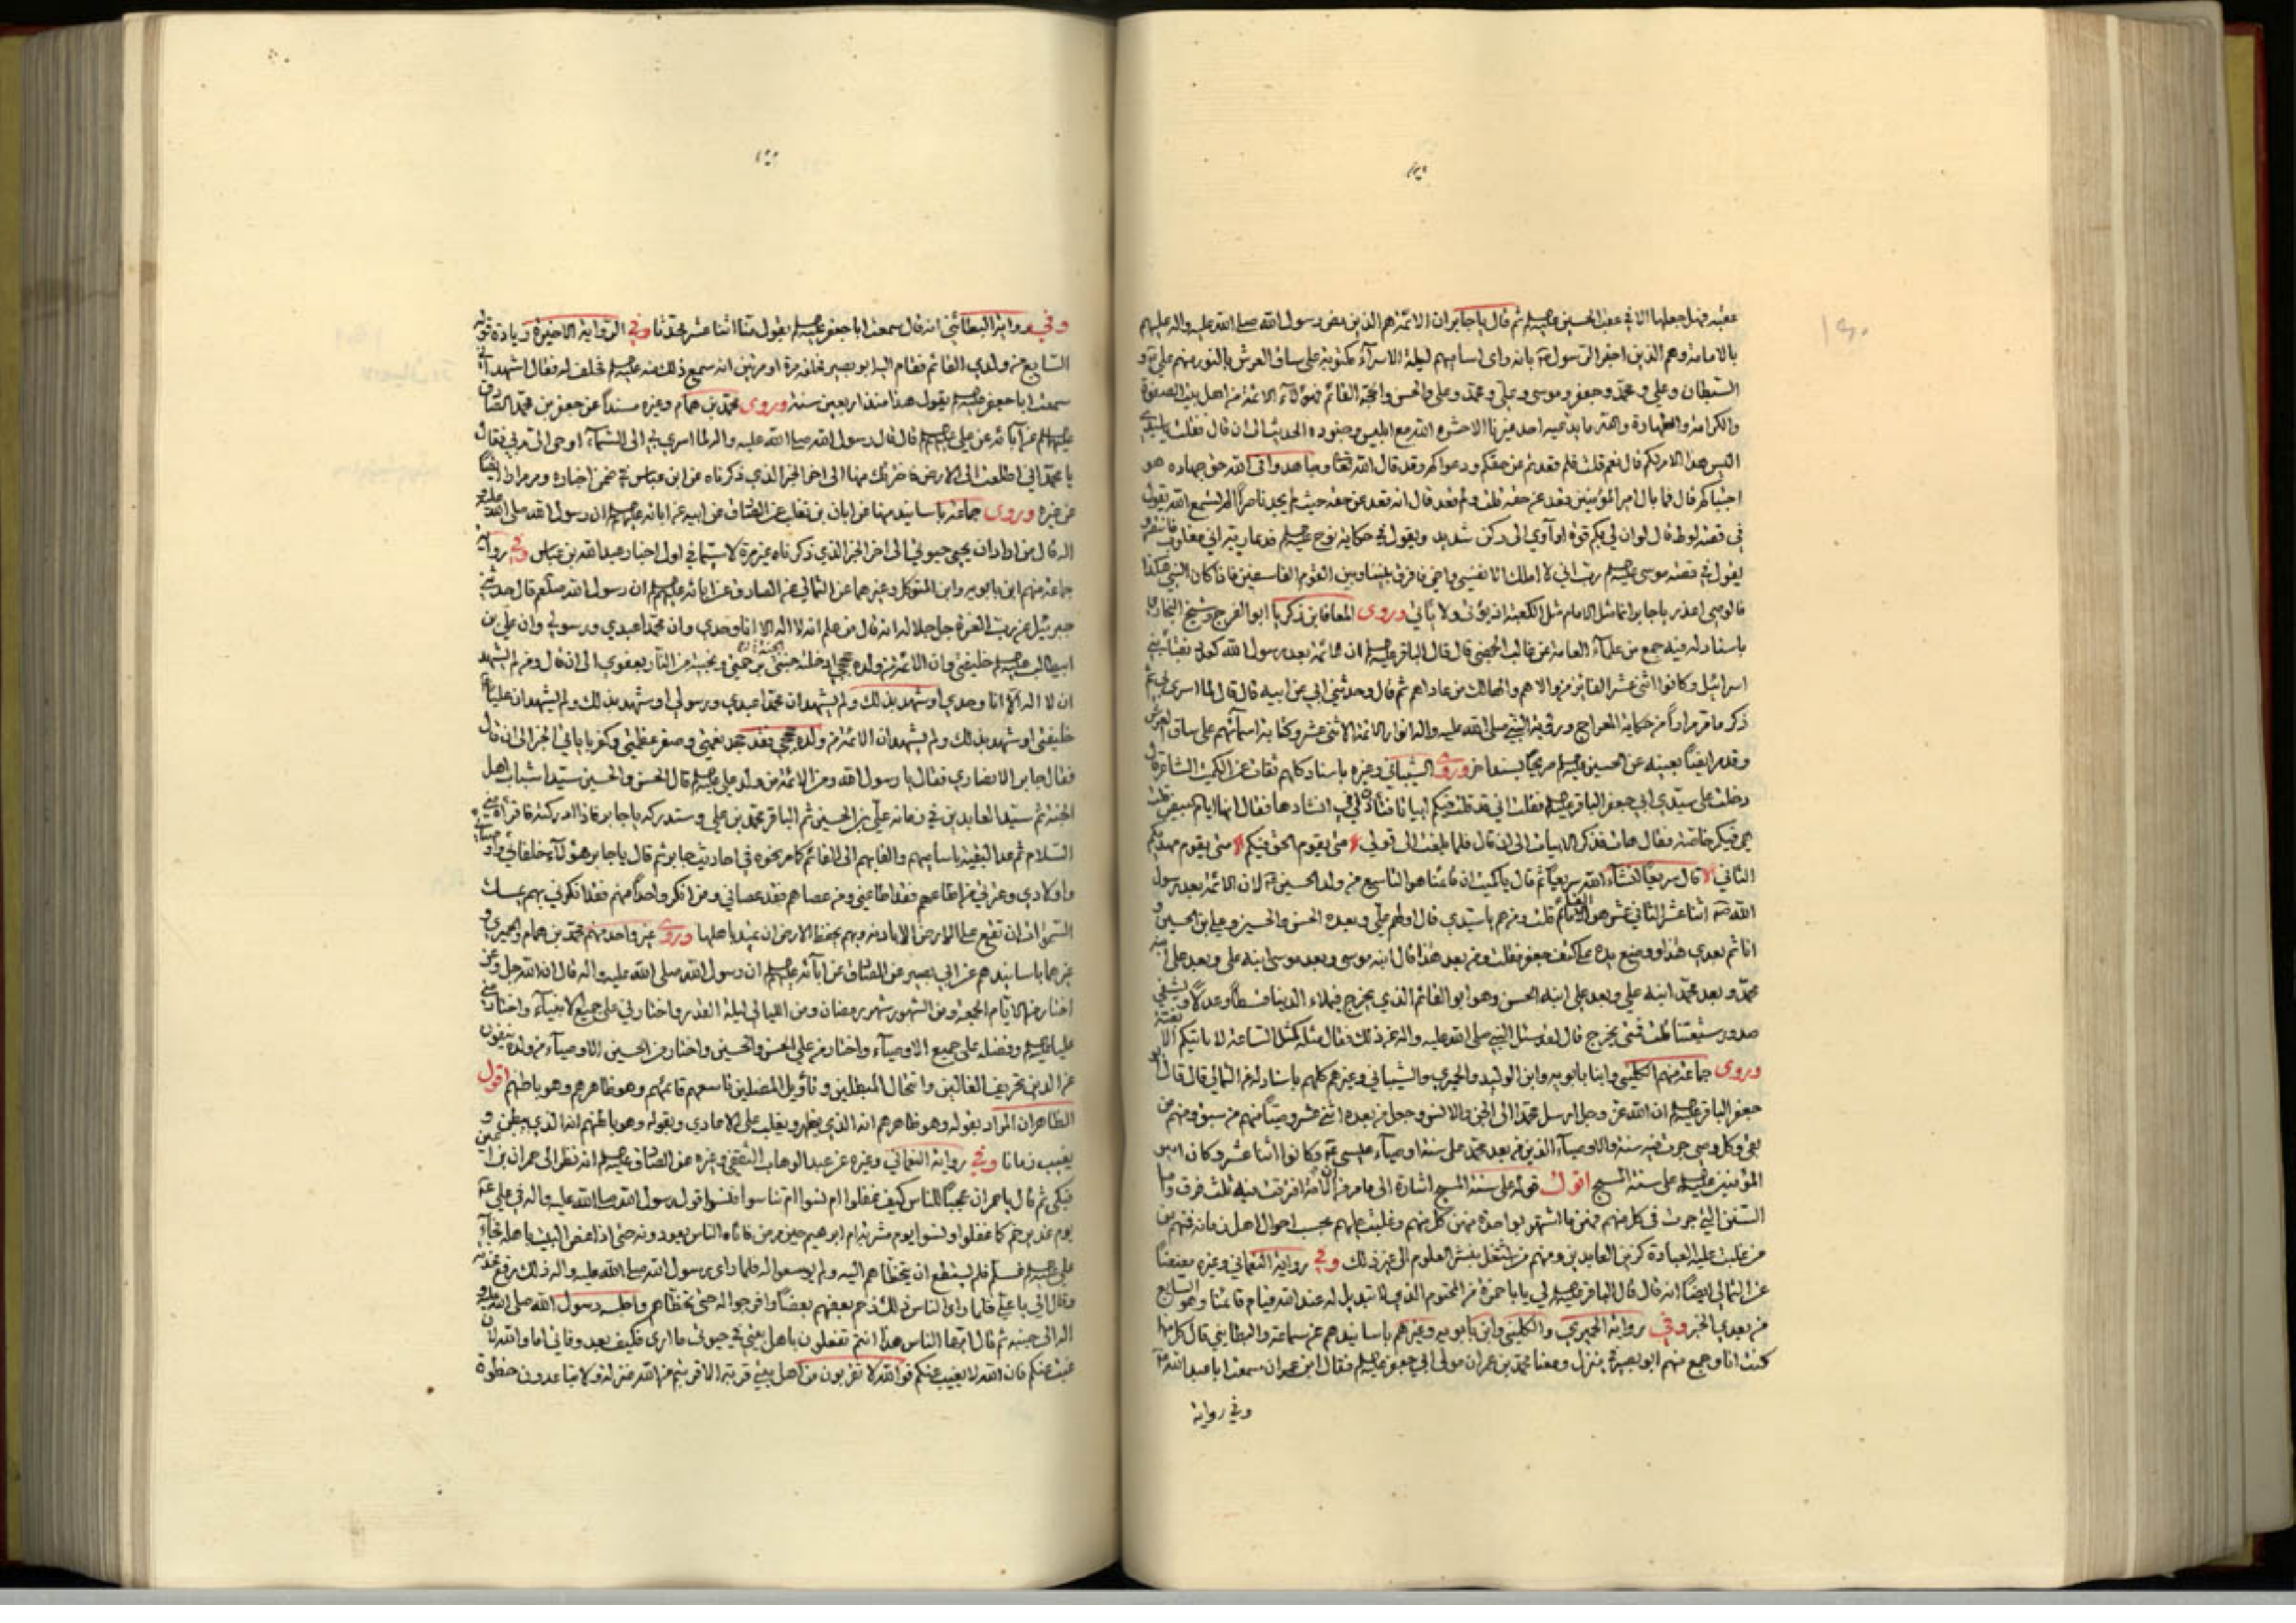 عقبه فهل جعلها الا في عقب الحسين عليه السلم ثم قال يا جابر ان الائمة هم الذين نص رسول الله صلى الله عليه واله عليهم
بالامامة وهم الذين اخبر الرسول بانه راى اساميهم ليلة الاسراء مكتوبة على ساق العرش بالنور منهم علي و
السبطان وعلي ومحمد وجعفر وموسى وعلي ومحمد وعلي والحسن والحجة القائم فهؤلاء الائمة من اهل بيت الصفوة
والكرامة والطهارة والله ما يدعيه احد غيرنا الا حشره الله مع ابليس وجنوده الحديث الى ان قال فقلت يا سيدي
اليس هذا الامر لكم قال نعم قلت فلم قعدتم عن حقكم ودعواكم وقد قال الله تعالى وجاهدوا في الله حق جهاده هو
اجتباكم قال فما بال امير المؤمنين قعد عن حقه قال انه قعد عن حقه حيث لم يجد ناصراً الم تسمع الله يقول
في قصة لوط قال لو ان لي بكم قوة او آوي الى ركن شديد ويقول في حكاية نوح عليه السلم فدعا ربه اني مغلوب فانتصر و
يقول في قصة موسى عليه السلم رب اني لا املك الا نفسي واخي فافرق بيننا وبين القوم الفاسقين فاذا كان النبي هكذا
فالوصي اعذر يا جابر انما مثل الامام مثل الكعبة اذ يؤتى ولا ياتي وروى المعافا بن ذكريا ابو الفرج وشيخ
باسناد له فيه جمع من علماء العامة عن غالب الجهني قال قال الباقر عليه السلم ان الائمة بعد رسول الله كعدد نقباء بني
اسرائيل وكانوا اثنى عشر الفائز من والاهم والهالك من عاداهم ثم قال وحدثني ابي عن ابيه قال قال لما اسري بي ثم
ذكر ما مر مراراً من حكاية المعراج ورؤية النبي صلى الله عليه واله انوار الائمة الاثنى عشر وكتابة اسمائهم على ساق العرش
وقد مر ايضاً بعينه عن الحسين عليه السلم صريحاً بسند اخر وروى الشيباني وغيره باسناد كلهم ثقات عن الكميت الشاعر قال
دخلت على سيدي ابي جعفر الباقر عليه السلم فقلت اني قد قلت فيكم ابياتا فتأذن لي في انشادها فقال انها ايام البيض قلت
هي فيكم خاصة فقال هات فذكر الابيات الى ان قال فلما بلغت الى قولي متى يقوم الحق فيكم متى يقوم مهديكم
الثاني قال سريعاً انشاء الله سريعاً ثم قال يا كميت ان قائمنا هو التاسع من ولد الحسين لان الائمة بعد رسول
الله اثنا عشر الثاني عشر هو القائم قلت ومن هم يا سيدي قال اولهم علي وبعده الحسن والحسين وعلي بن الحسين و
انا ثم بعدي هذا ووضع يده على كتف جعفر فقلت ومن بعد هذا قال ابنه موسى وبعد موسى ابنه علي وبعد علي ابنه
محمد وبعد محمد ابنه علي وبعد علي ابنه الحسن وهو ابو القائم الذي يخرج فيملاء الدنيا قسطا وعدلا ويشفي
صدور شيعتنا قلت فمتى يخرج قال لقد سئل النبي صلى الله عليه واله عن ذلك فقال مثله كمثل الساعة لا ياتيكم الا بغتة
وروى جماعة منهم الكليني وابنا بابويه وابن الوليد والحميري والشيباني وغيرهم كلهم باسناد له عن الثمالي قال قال ابو
جعفر الباقر عليه السلم ان الله عز وجل ارسل محمدا الى الجن والانس وجعل من بعده اثنى عشر وصياً منهم من سبق ومنهم من
بقي وكل وصي جرت فيه سنة والاوصياء الذين من بعد محمد على سنة اوصياء عيسى وكانوا اثنا عشر وكان امير
المؤمنين عليه السلم على سنة المسيح اقول قوله على سنة المسيح اشارة الى ما مر من ان الامة افترقت فيه ثلث فرق واما
السنن التي جرت في كل منهم فهي ما اشتهر بواحدة منهن كل منهم وغلبت عليهم بحسب احوال اهل زمانه فمنهم من
من غلبت عليه العبادة كزين العابدين ومنهم من اشتغل بنشر العلوم الى غير ذلك وفي رواية النعماني وغيره
عن الثمالي ايضاً انه قال قال الباقر عليه السلم لي يا با حمزة من المحتوم الذي لا تبديل له عند الله قيام قائمنا وهو السابع
من بعدي الخبر وفي رواية الحميري والكليني وابن بابويه وغيرهم باسانيدهم عن سماعة والبطايني قال كل منهما
كنت انا وجمع منهم ابو بصير في منزل ومعنا محمد بن عمران مولى ابي جعفر عليه السلم فقال ابن عمران سمعت ابا عبد الله
وفي رواية
وفي رواية البطائني انه قال سمعت ابا جعفر عليه السلم يقول منا اثنا عشر محدثا وفي الرواية الاخيرة زيادة قوله
السابع من ولدي القائم فقام اليه ابو بصير فحلفه مرة او مرتين انه سمع ذلك منه عليه السلم فحلف له فقال اشهد اني
سمعت ابا جعفر عليه السلم يقول هذا منذ اربعين سنة وروى محمد بن همام وغيره مسنداً عن جعفر بن محمد الصادق
عليه السلم عن آبائه عن علي عليه السلم قال قال رسول الله صلى الله عليه واله لما اسري بي الى السماء اوحى الي ربي فقال
يا محمد اني اطلعت الى الارض فاخترتك منها الى اخر الخبر الذي ذكرناه عن ابن عباس في ضمن اخباره ومر مرارا ايضاً
عن غيره وروى جماعة باسانيد منها عن ابان بن تغلب عن الصادق عن ابيه عن ابائه عليهم السلم ان رسول الله صلى الله عليه و
اله قال من اراد ان يحيى حيوتي الى اخر الخبر الذي ذكرناه غير مرة لا سيما في اول اخبار عبد الله بن عباس وفي رواية
جماعة منهم ابن بابويه وابن المتوكل وغيرهما عن الثمالي عن الصادق عن ابائه عليهم السلم ان رسول الله صلعم قال حدثني
جبرئيل عن رب العزة جل جلاله انه قال من علم ان لا اله الا انا وحدي وان محمدا عبدي ورسولي وان علي بن
ابيطالب عليه السلم خليفتي وان الائمة من ولده حججي ادخلته الجنة برحمتي ونجيته من النار بعفوي الى ان قال ومن لم يشهد
ان لا اله الا انا وحدي او شهد بذلك ولم يشهد ان محمدا عبدي ورسولي او شهد بذلك ولم يشهد ان علياً
خليفتي او شهد بذلك ولم يشهد ان الائمة من ولده حججي فقد جحد نعمتي وصغر عظمتي وكفر باياتي الخبر الى ان قال
فقال جابر الانصاري فقال يا رسول الله ومن الائمة من ولد علي عليه السلم قال الحسن والحسين سيدا شباب اهل
الجنة ثم سيد العابدين في زمانه علي بن الحسين ثم الباقر محمد بن علي وستدركه يا جابر فاذا ادركته فاقرأه مني
السلام ثم عد البقية باساميهم والقابهم الى القائم كما مر نحوه في احاديث جابر ثم قال يا جابر هؤلآء خلفائي واوصيائي
واولادي وعترتي من اطاعهم فقد اطاعني ومن عصاهم فقد عصاني ومن انكر واحداً منهم فقد انكرني بهم يمسك
السموات ان تقع على الارض الا باذنه وبهم يحفظ الارض ان تميد باهلها وروى غير واحد منهم محمد بن همام والحميري و
غيرهما باسانيدهم عن ابي بصير عن الصادق عن آبائه عليهم السلم ان رسول الله صلى الله عليه واله قال ان الله جل وعز
اختار من الايام الجمعة ومن الشهور شهر رمضان ومن الليالي ليلة القدر واختارني على جميع الانبياء واختار مني
عليا عليه السلم وفضله على جميع الاوصياء واختار من علي الحسن والحسين واختار من الحسين الاوصياء من ولده ينفون
عن الدين تحريف الغالين وانتحال المبطلين وتأويل المضلين تاسعهم قائمهم وهو ظاهرهم وهو باطنهم اقول
الظاهر ان المراد بقوله وهو ظاهرهم انه الذي يظهر ويغلب على الاعادي وبقوله وهو باطنهم انه الذي يبطن و
يغيب زمانا وفي رواية النعماني وغيره عن عبد الوهاب الثقفي وغيره عن الصادق عليه السلم انه نظر الى حمران بن اعين
فبكى ثم قال يا حمران عجباً للناس كيف غفلوا ام نسوا ام تناسوا فنسوا قول رسول الله صلى الله عليه واله في علي
يوم غدير خم كما غفلوا او نسوا يوم مشربة ام ابرهيم حين مرض فاتاه الناس يعودونه حتى اذا غص البيت باهله فجاء
علي عليه السلم فسلم فلم يستطع ان يتخطاهم اليه ولم يوسعوا له فلما راى رسول الله صلى الله عليه واله ذلك رفع مخدته
وقال الي يا علي فلما راى الناس ذلك زحم بعضهم بعضاً وافرجوا له حتى تخطاهم واجلسه رسول الله صلى الله عليه و
اله الى جنبه ثم قال ايها الناس هذا انتم تفعلون باهل بيتي في حيوتي ما ارى فكيف بعد وفاتي اما والله لئن
غبت عنكم فان الله لا يغيب عنكم فوالله لا تقربون من اهل بيتي قربة الا قربتم من الله منزلة ولا تباعدون خطوة